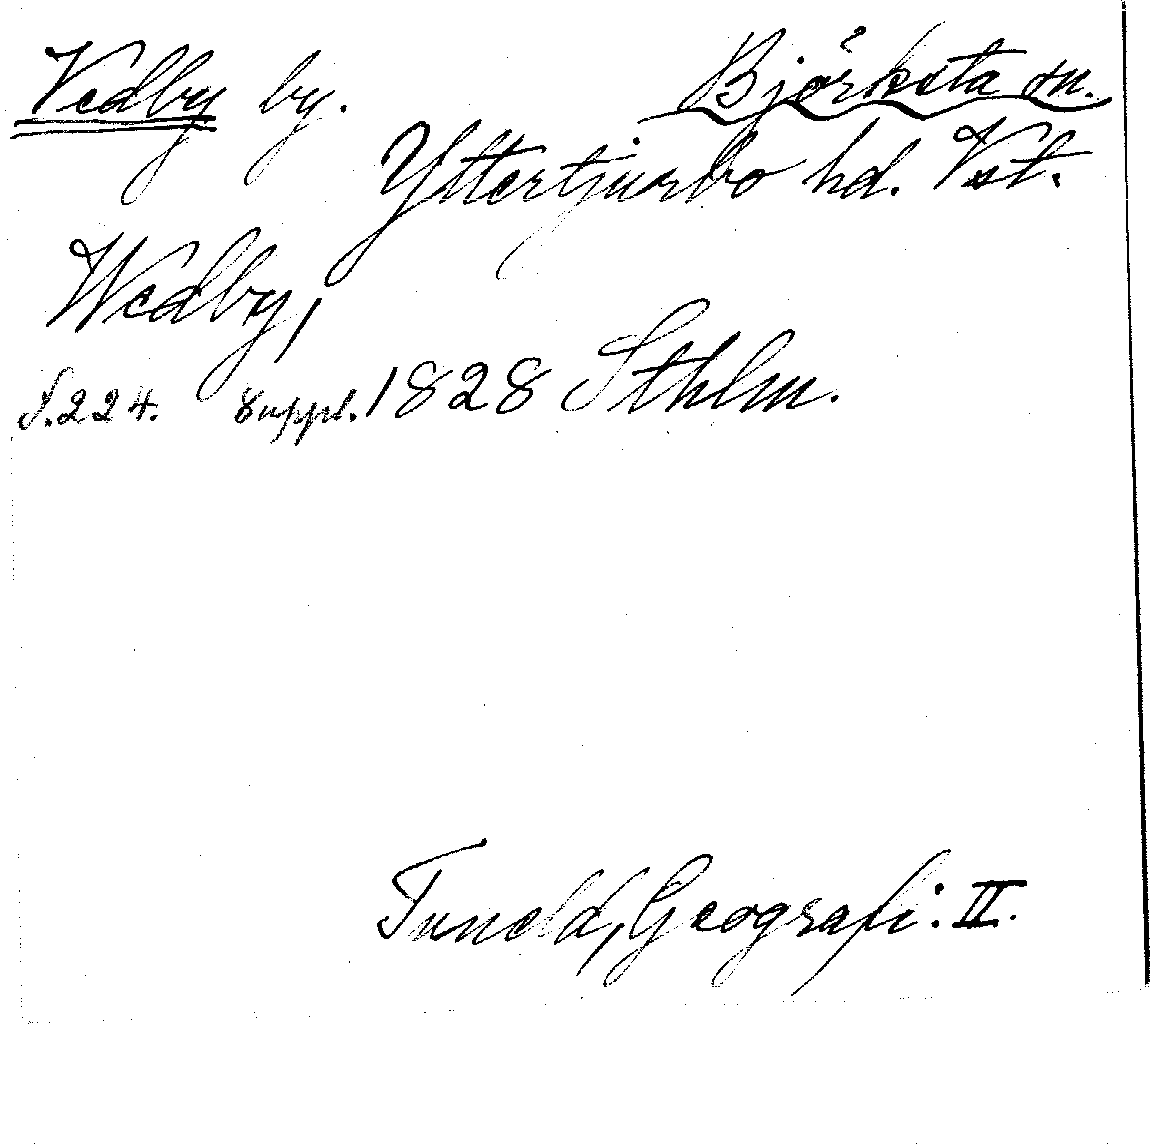 Vedby by. Björksta sn.
Yttertjurbo hd. Vst.
Wedby,
S.224. Suppl. 1828 Sthlm.
Tuneld, Geografi: II.